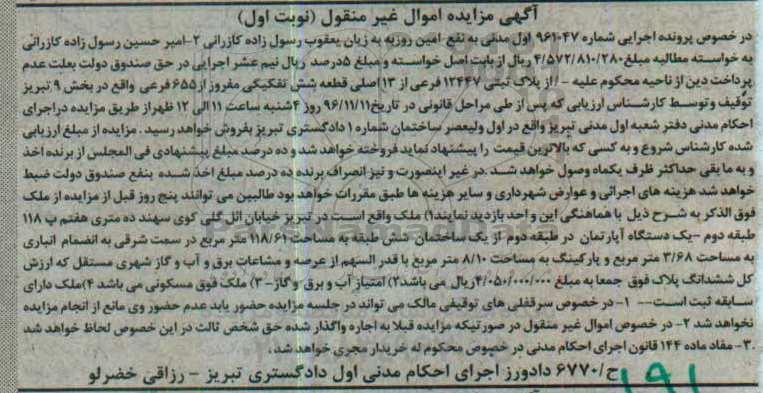 آگهی مزایده اموال غیر منقول (نوبت اول)
در خصوص پرونده اجرایی شماره ۹۶۱۰۴۷ اول مدنی به نفع امین روزبه به زیان یعقوب رسول زاده کازرانی ۲-امیر حسین رسول زاده کازرانی
به خواسته مطالبه مبلغ ۴/۵۷۲/۸۱۰/۲۸۰ ریال از بابت اصل خواسته و مبلغ ۵درصد ریال نیم عشر اجرایی در حق صندوق دولت بعلت عدم
پرداخت دین از ناحیه محکوم علیه - /از پلاک ثبتی ۱۲۴۴۷ فرعی از ۱۳ اصلی قطعه شش تفکیکی مفروز از ۶۵۵ فرعی واقع در بخش ۹ تبریز
توقیف و توسط کارشناس ارزیابی که پس از طی مراحل قانونی در تاریخ ۹۶/۱۱/۱۱ روز ۴شنبه ساعت ۱۱ الی ۱۲ ظهر از طریق مزایده دراجرای
احکام مدنی دفتر شعبه اول مدنی تبریز واقع در اول ولیعصر ساختمان شماره ۱ دادگستری تبریز بفروش خواهد رسید . مزایده از مبلغ ارزیابی
شده کارشناس شروع و به کسی که بالاترین قیمت را پیشنهاد نماید فروخته خواهد شد و ده درصد مبلغ پیشنهادی فی المجلس از برنده اخذ
و به ما بقی حداکثر ظرف یکماه وصول خواهد شد .در غیر اینصورت و نیز انصراف برنده ده درصد مبلغ اخذ شده بنفع صندوق دولت ضبط
خواهد شد هزینه های اجرائی و عوارض شهرداری و سایر هزینه ها طبق مقررات خواهد بود طالبین می توانند پنج روز قبل از مزایده از ملک
فوق الذکر به شرح ذیل با هماهنگی این واحد بازدید نمایند۱) ملک واقع است در تبریز خیابان ائل گلی کوی سهند ده متری هفتم پ ۱۱۸
طبقه دوم -یک دستگاه آپارتمان در طبقه دوم از یک ساختمان شش طبقه به مساحت ۱۱۸/۶۱ متر مربع در سمت شرقی به انضمام انباری
به مساحت ۳/۶۸ متر مربع و پارکینگ به مساحت ۸/۱۰ متر مربع با قدر السهم از عرصه و مشاعات برق و آب و گاز شهری مستقل که ارزش
کل ششدانگ پلاک فوق جمعا به مبلغ ۴/۰۵۰/۰۰۰/۰۰۰ ریال می باشد ۲) امتیاز آب و برق و گاز - ۳) ملک فوق مسکونی می باشد ۴)ملک دارای
سابقه ثبت است-- ۱- در خصوص سرقفلی های توقیفی مالک می تواند در جلسه مزایده حضور یابد عدم حضور وی مانع از انجام مزایده
نخواهد شد ۲- در خصوص اموال غیر منقول در صورتیکه مزایده قبلا به اجاره واگذار شده حق شخص ثالث در این خصوص لحاظ خواهد شد
.۳- مفاد ماده ۱۴۴ قانون اجرای احکام مدنی در خصوص محکوم له خریدار مجری خواهد شد.
ح/۶۷۷۰ دادورز اجرای احکام مدنی اول دادگستری تبریز - رزاقی خضرلو
۱۹۱